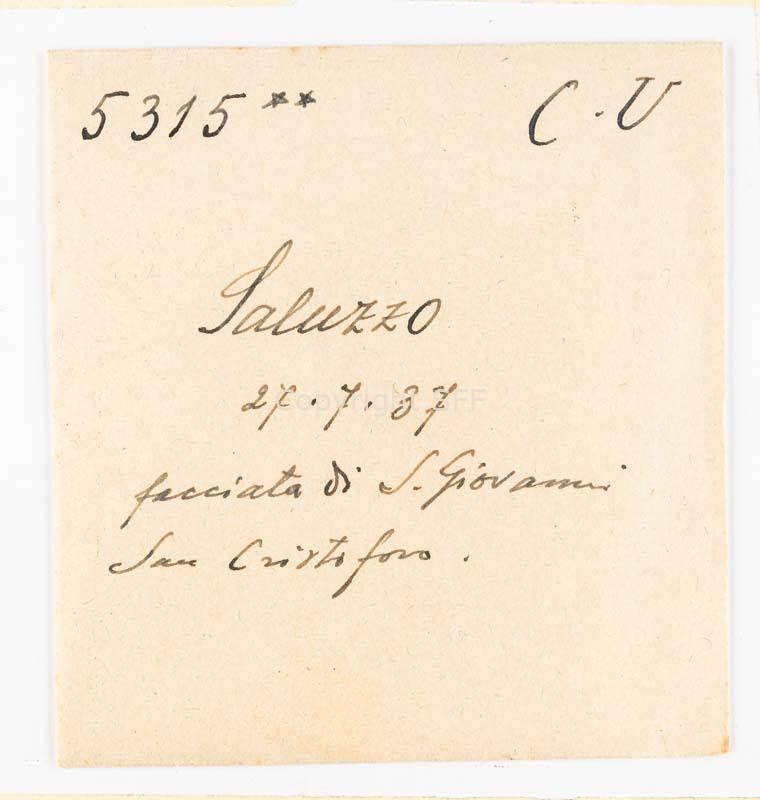 5315** C.V
Saluzzo
27.7.37
Copyright SFF
facciata di S. Giovanni
San Cristoforo.